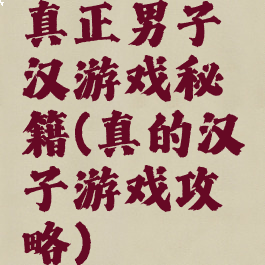 真正男子
汉游戏秘
籍(真的汉
子游戏攻
略)